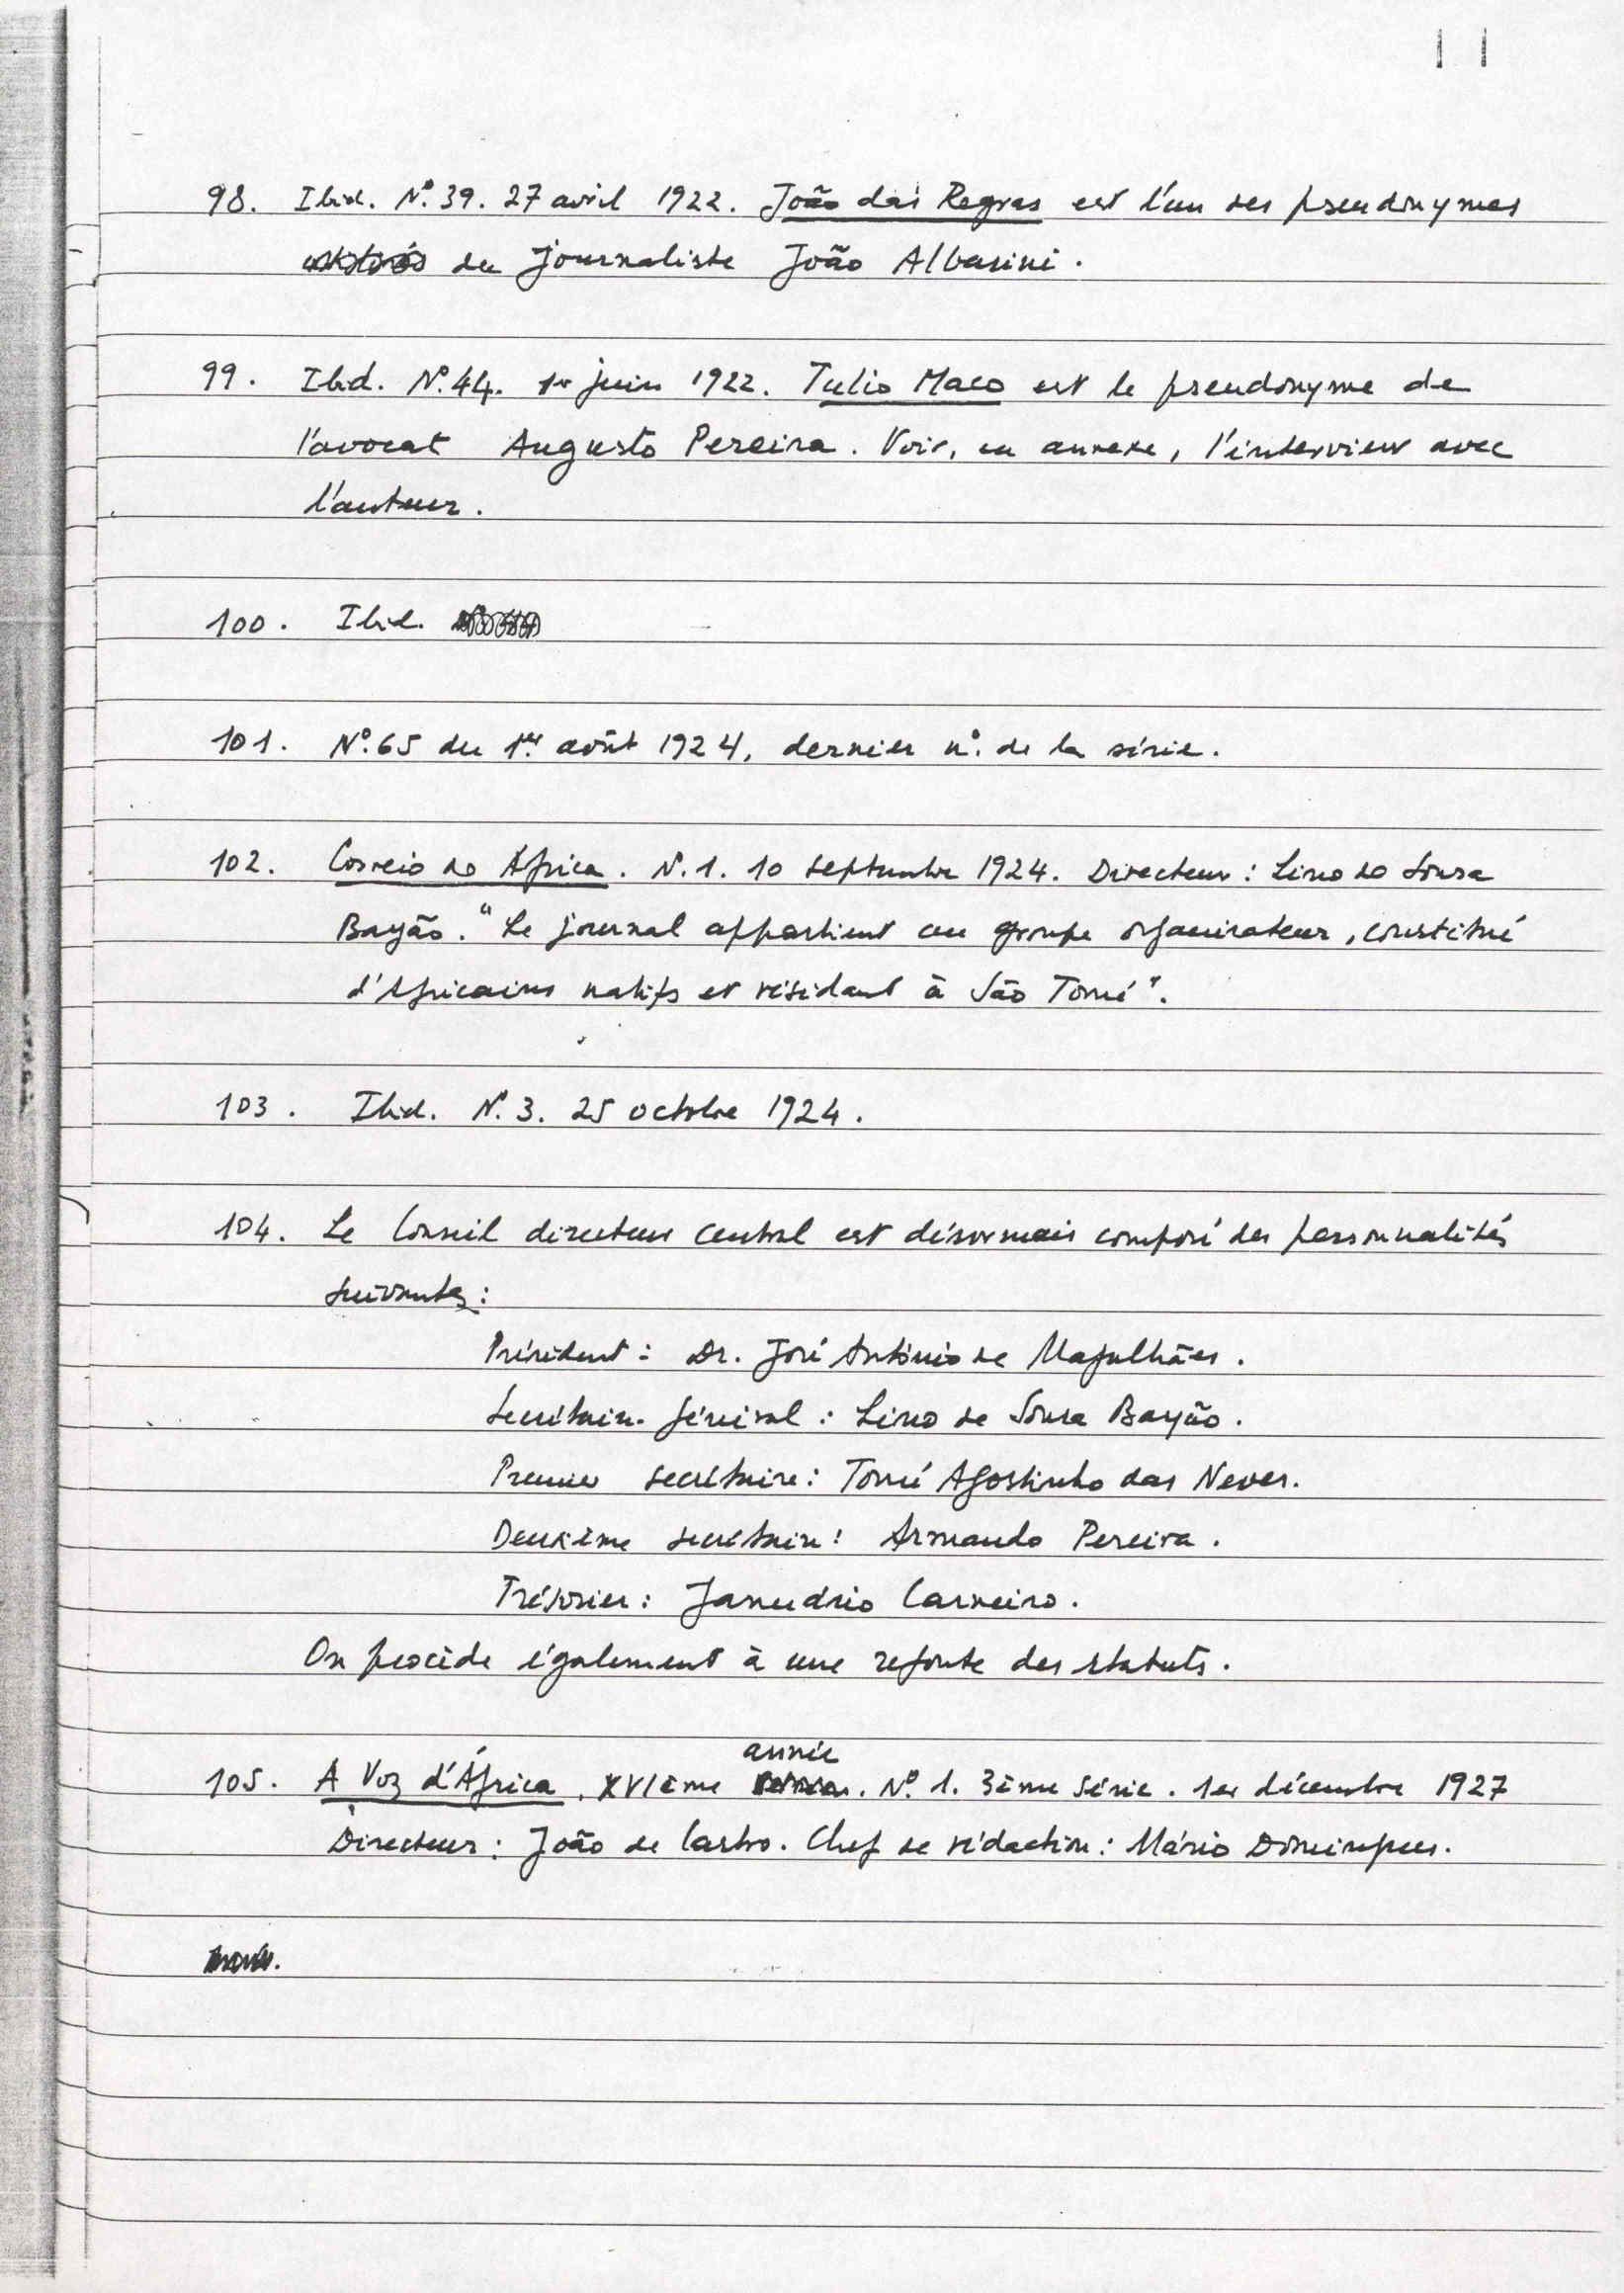 11
98. Ibid. Nº. 39. 27 avril 1922. João das Regras est l'un des pseudonymes
du journaliste João Albasini.
99. Ibid. Nº. 44. 1er juin 1922. Tulio Maco est le pseudonyme de
l'avocat Augusto Pereira. Voir, en annexe, l'interview avec
l'auteur.
100. Ibid.
101. Nº. 65 du 1er août 1924, dernier nº. de la série.
102. Correio de África. N. 1. 10 septembre 1924. Directeur : Lino de Sousa
Bayão. "Le journal appartient au groupe organisateur, constitué
d'Africains natifs et résidant à São Tomé".
103. Ibid. Nº. 3. 25 octobre 1924.
104. Le Conseil directeur central est désormais composé des personnalités
suivantes :
Président : Dr. José António de Magalhães.
Secrétaire-général : Lino de Sousa Bayão.
Premier secrétaire : Tomé Agostinho das Neves.
Deuxième secrétaire : Armando Pereira.
Trésorier : Januário Carneiro.
On procède également à une refonte des statuts.
année
105. A Voz d'África. XVIème . Nº 1. 3ème série. 1er décembre 1927
Directeur : João de Castro. Chef de rédaction : Mário Domingues.